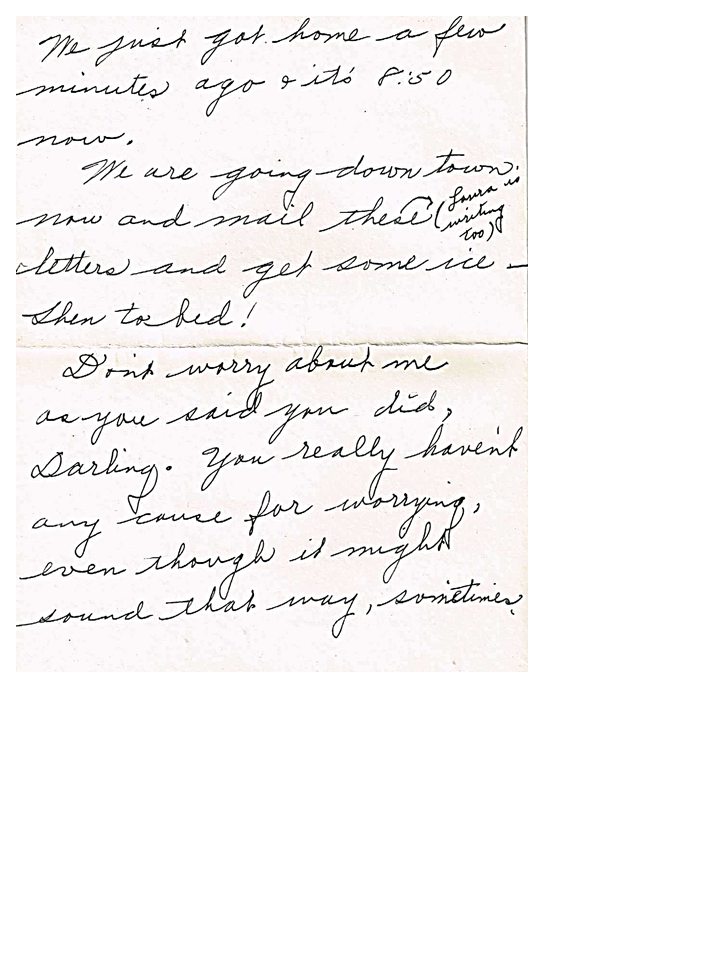 We just got home a few
minutes ago & it's 8:50
now.
We are going down town
now and mail these (Laura is
writing
too)
letters and get some ice –
then to bed!
Don't worry about me
as you said you did,
Darling. You really haven't
any cause for worrying,
even though it might
sound that way, sometimes.